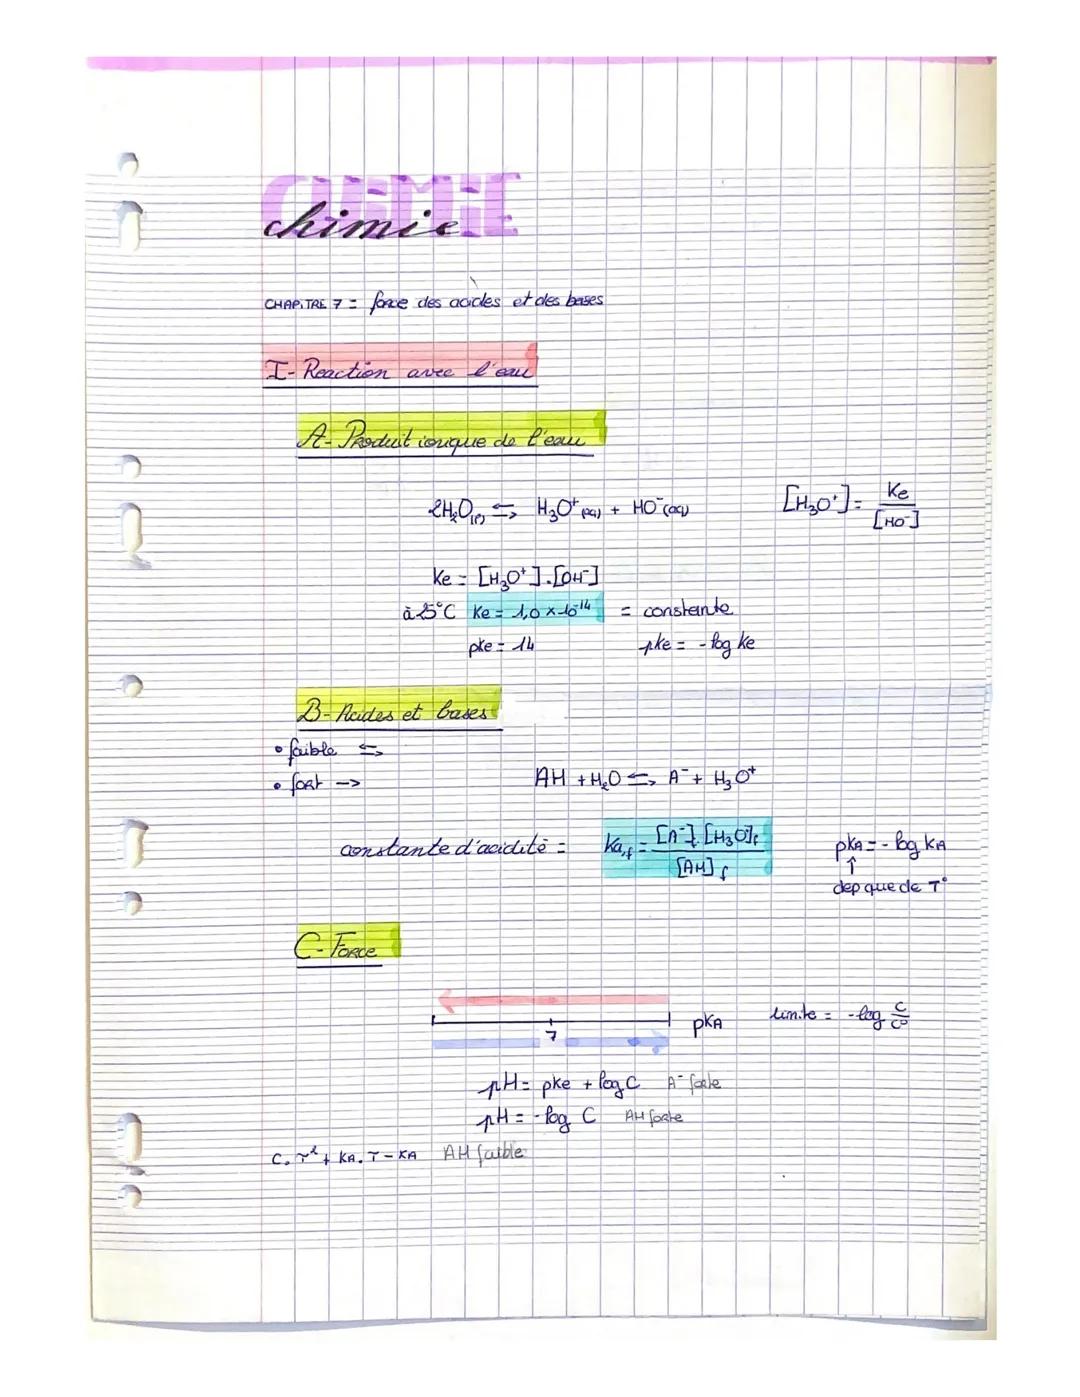 CHIMIE
chimie
CHAPITRE 7 = force des acides et des bases
I- Reaction avec l'eau
A- Produit ionique de l'eau
2H₂O(l) ⇆ H₃O⁺(aq) + HO⁻(aq)
[H₃O⁺] = Ke / [HO⁻]
Ke = [H₃O⁺].[OH⁻]
à 25°C Ke = 1,0 × 10⁻¹⁴ = constante
pke = 14 pke = - log ke
B- Acides et bases
• faible ⇆
• fort →
AH + H₂O ⇆ A⁻ + H₃O⁺
constante d'acidité = Ka,f = [A⁻]f [H₃O⁺]f / [AH]f
pKA = - log KA
↑
dep que de T°
C- Force
7 pKA
limite = - log C/C°
pH = pke + log C A⁻ forte
pH = - log C AH forte
C. τ² + KA. τ - KA AH faible